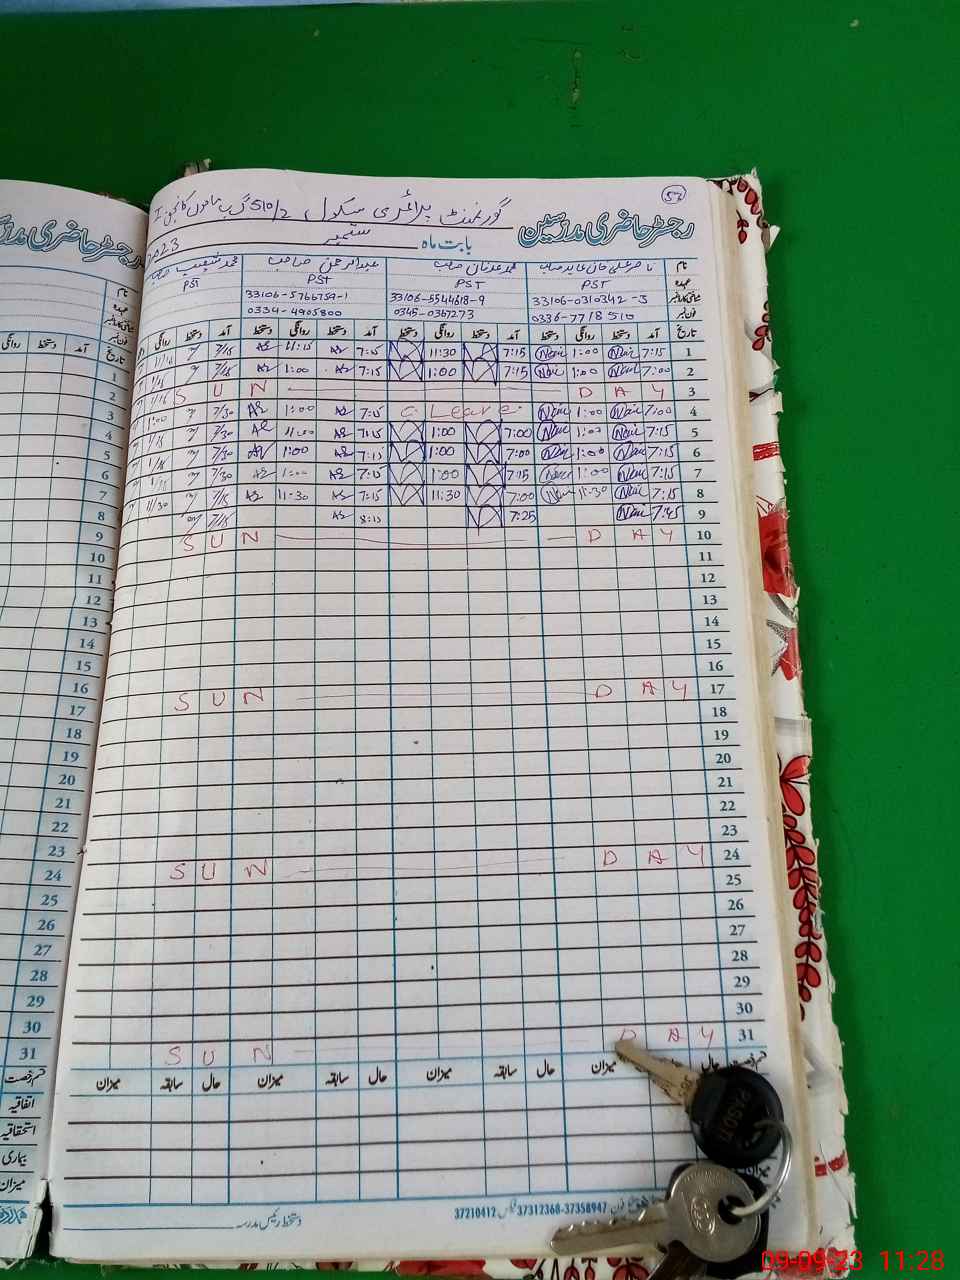 53
گورنمنٹ پرائمری سکول 510/2 گ ب ماموں کانجن I
رجسٹر حاضری مدرسین
بابت ماہ ستمبر 2023
نام ناصر علی خان عابد صاحب محمد عدنان صاحب عبدالرحمن صاحب محمد شعیب صاحب
عہدہ PST PST PST PST
33106-0310342-5 33106-5544618-9 33106-5766759-1
فون نمبر 0336-7718510 0345-0367273 0334-4905800
تاریخ آمد دستخط روانگی دستخط آمد دستخط روانگی دستخط آمد دستخط روانگی دستخط آمد دستخط روانگی
1 7:15 1:00 7:15 11:30 7:15 11:15 7/15
2 7:00 1:00 7:15 1:00 7:15 1:00 7/15
3 S U N D A Y
4 7:00 1:00 C. Leave 7:15 1:00 7/30 1:00
5 7:15 1:00 7:00 1:00 7:15 7/30
6 7:15 1:00 7:00 1:00 7:15 1:00 7/30
7 7:15 1:00 7:15 1:00 7:15 1:00 7/30
8 7:15 11:30 7:00 11:30 7:15 11:30 7/15 11/30
9 7:45 7:25 8:15 7/15
10 S U N D A Y
11
12
13
14
15
16
17 S U N D A Y
18
19
20
21
22
23
24 S U N D A Y
25
26
27
28
29
30
31 S U N D A Y
قسم رخصت حال میزان حال سابقہ میزان حال سابقہ میزان حال سابقہ میزان
میزان
دستخط رئیس مدرسہ
فون 37312368-37358947 فیکس 37210412
رجسٹر حاضری مدرسین
نام
عہدہ
فون نمبر
تاریخ آمد دستخط روانگی
1
2
3
4
5
6
7
8
9
10
11
12
13
14
15
16
17
18
19
20
21
22
23
24
25
26
27
28
29
30
31
قسم رخصت
اتفاقیہ
استحقاقیہ
بیماری
میزان
09-09-23 11:28